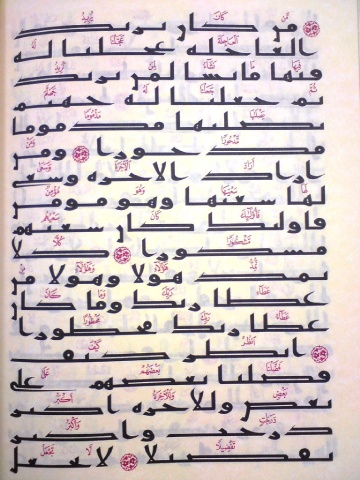 من كان يريد
العاجله عجلنا له
فيها ما نشا لمن نريد
ثم جعلنا له جهنم
يصليها مذموما
مدحورا ومن
اراد الاخره وسعى
لها سعيها وهو مومن
فاوليك كان سعيهم
مشكورا كلا
نمد هولا وهولا من
عطا ربك وما كان
عطا ربك محظورا
انظر كيف
فضلنا بعضهم على
بعض وللاخره اكبر
درجت واكبر
تفضيلا لا تجعل